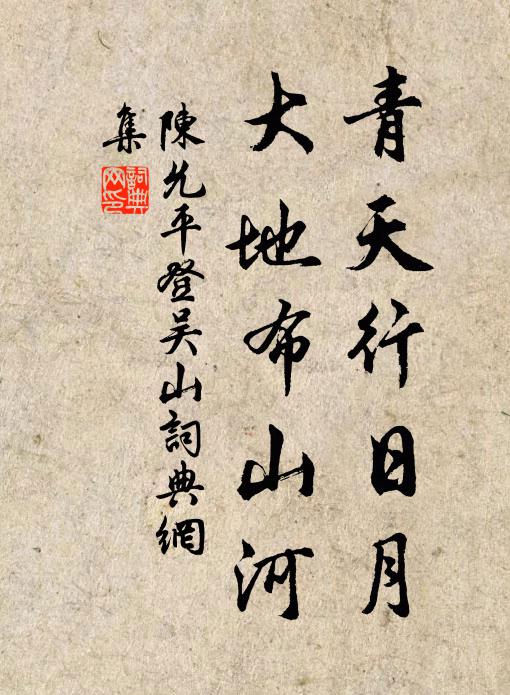 青天行日月
大地布山河
陳允平登吴山詞典網
集
詞典
网印